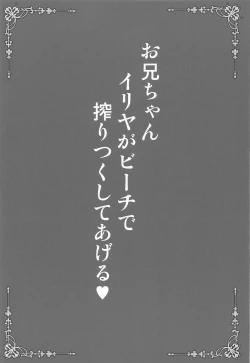 お兄ちゃん
イリヤがビーチで
搾りつくしてあげる♥